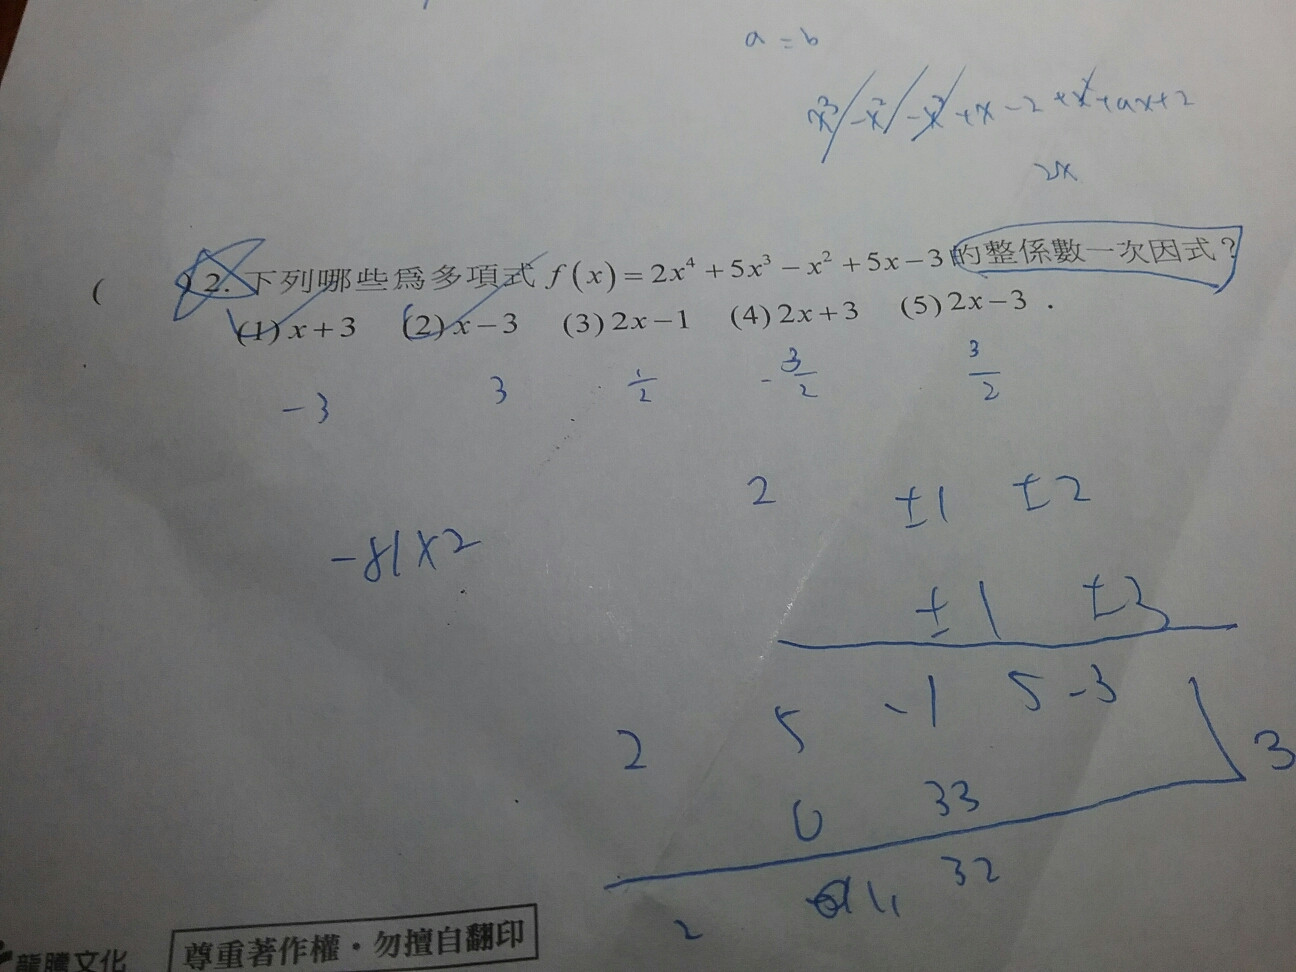 a = b
x³ - x² - x² + x - 2 + x² + ax + 2
2x
( ) 2. 下列哪些為多項式 f(x) = 2x⁴ + 5x³ − x² + 5x − 3 的整係數一次因式?
(1) x + 3 (2) x − 3 (3) 2x − 1 (4) 2x + 3 (5) 2x − 3 .
-3 3 1/2 -3/2 3/2
2 ±1 ±2
-81×2
±1 ±3
2 5 -1 5 -3 3
6 33
2 11 32
龍騰文化 尊重著作權・勿擅自翻印